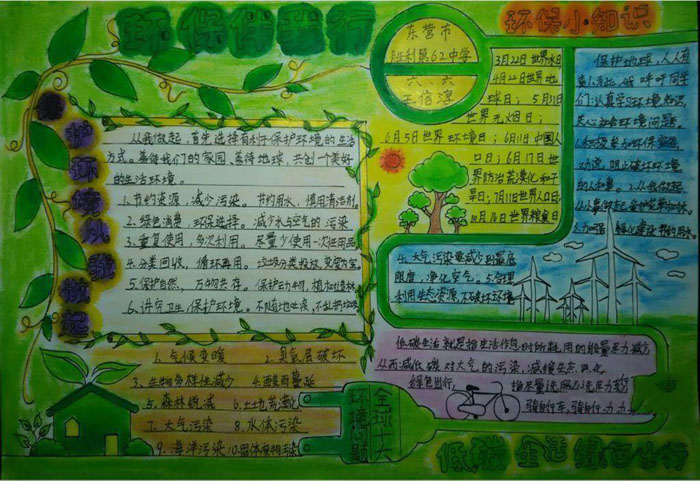 环保伴我行
东营市
胜利第62中学
六、六
王信淳
环保小知识
保护环境从我做起
从我做起,首先选择有利于保护环境的生活
方式。善待我们的家园,善待地球,共创一个美好
的生活环境。
1.节约资源,减少污染。节约用水,慎用清洁剂。
2.绿色消费,环保选择。减少水与空气的污染
3.重复使用,多次利用。尽量少使用一次性用品
4.分类回收,循环再用。垃圾分类投放,变废为宝。
5.保护自然,万物共存。保护动物,植树造林
6.讲究卫生,保护环境。不随地吐痰,不乱扔垃圾
3月22日世界水日
4月22日世界地
球日;5月31日
世界无烟日;
6月5日世界环境日;6月11日中国人
口日;6月17日世
界防治荒漠化和干
旱日;7月11日世界人口日;
10月16日世界粮食日
保护地球,人人有
责
同学
们认真学习环境知识,
关心社会环境问题。
积极参加环保宣传
活动,阻止破坏环境
的人和事。3.从我做起
从小事做起,爱护花草树林
绿化建设 节约用水
4.大气污染要减少到最低
限度,净化空气;5.合理
利用生态资源,不破坏环境
低碳生活就是指生活作息时所耗用的能量尽力减少
从而减低碳对大气的污染,减缓生态恶化
绿色出行,
骑自行车
1.气候变暖
2.臭氧层破坏
3.生物多样性减少
4.酸雨蔓延
5.森林锐减
6.土地荒漠化
7.大气污染
8.水体污染
9.海洋污染
10.固体废物污染
全球十大
环境问题
低碳生活 绿色出行